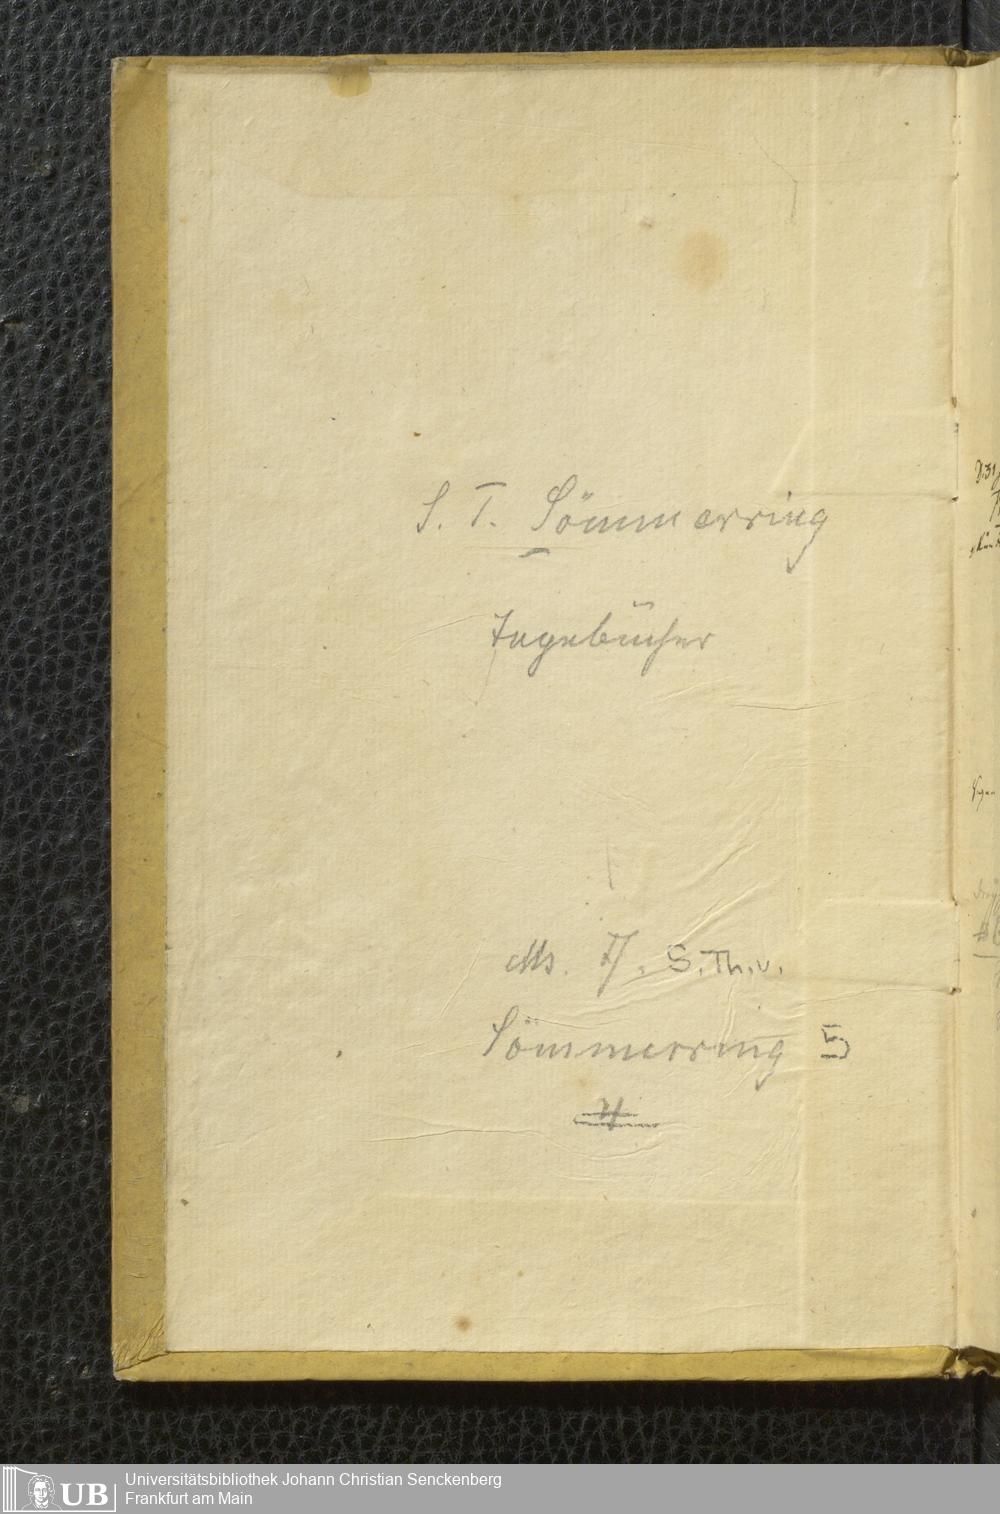 S. T. Sömmerring
Tagebücher
Ms. Ff. S. Th. v.
Sömmerring 5
UB
Universitätsbibliothek Johann Christian Senckenberg
Frankfurt am Main